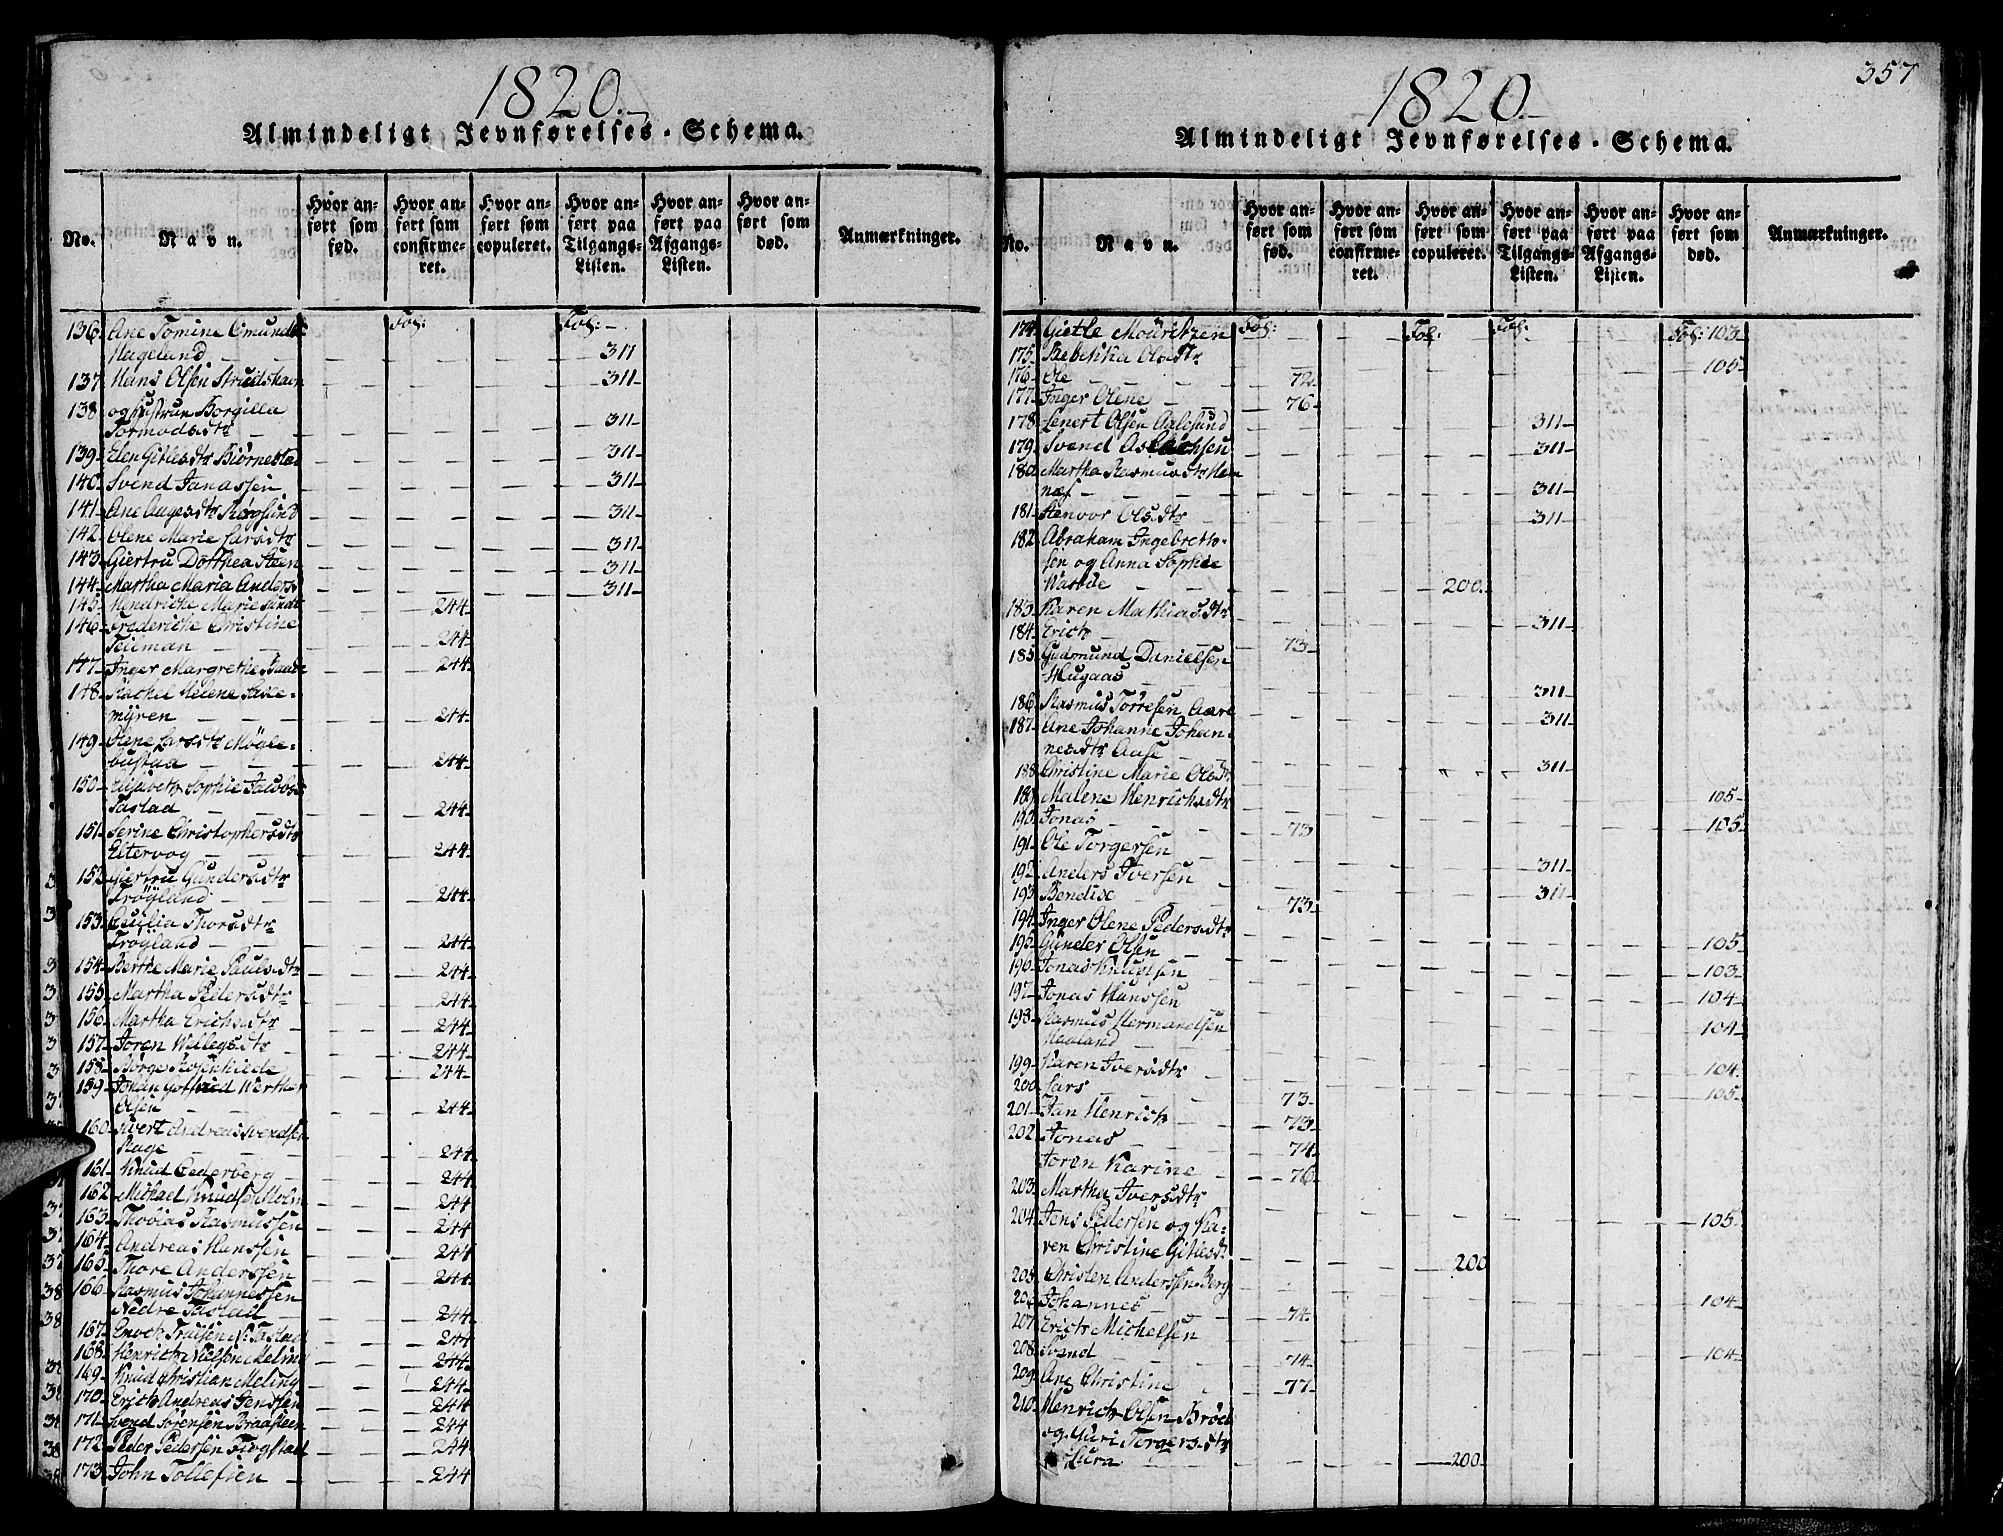 1820.
Almindeligt Jevnførelses-Schema.
No.
Navn.
Hvor anført som fød.
Hvor anført som confirmeret.
Hvor anført som copuleret.
Hvor anført paa Tilgangs-Listen.
Hvor anført paa Afgangs-Listen.
Hvor anført som død.
Anmærkninger.
Fol: Fol:
136. Ane Tomine Omunds
Hageland 311
137. Hans Olsen 311
138 og Hustrue Borgilla
Tormodsdtr 311
139. Elen Gitlesdtr Biørnestad 311
140. Svend Janassen 311
141. Ane Aagesdtr 311
142. Olene Marie Larsdtr 311
143. Giertru Dorthea Steen 311
144. Martha Maria Anders 311
145. Hendricke Marie 244
146. Frederiche Christine
Teilman 244
147. Inger Margrethe 244
148. Rachel Helene
myren 244
149. Olene Larsdtr Møgle-
bustad 244
150. Elisabeth Sophie
Tastad 244
151. Serine Christophersdtr
Eltervog 244
152. Giertru Gundersdtr
Frøyland 244
153. Cecilia Thorsdtr
Frøyland 244
154. Berthe Marie Paulsdtr 244
155. Martha Pedersdtr 244
156. Martha Erichsdtr 244
157. Soren 244
158. Børge Rosenkilde 244
159. Johan Gotfried Werther
Olsen 244
160. Sivert Andreas Svendsen
Rage 244
161. Knud Cederberg 244
162. Michael Knudsen Holm 244
163. Thobias Rasmussen 244
164. Andreas Hanssen 244
165. Thore Anderssen 244
166. Rasmus Johannessen
Nedre Tastad 244
167. Enoch 244
168. Henrich Nielsen Meling 244
169. Knud Christian Meling 244
170. Erich Andreas Jenssen 244
171. Svend Sørensen Braasteen 244
172. Peder Pedersen 244
173. John Tollefsen 244
357
1820.
Almindeligt Jevnførelses-Schema.
No.
Navn.
Hvor anført som fød.
Hvor anført som confirmeret.
Hvor anført som copuleret.
Hvor anført paa Tilgangs-Listen.
Hvor anført paa Afgangs-Listen.
Hvor anført som død.
Anmærkninger.
174. Gietle Mouritzen Fol: Fol: Fol: Fol: 103
175. Rebekka Olsdtr 105
176. Ole 72
177. Inger Olene 76
178. Lenert Olsen Aalesund 311
179. Svend Aslachsen 311
180. Martha Rasmusdtr
næs 311
181. Stenvor Olsdtr 311
182. Abraham Ingebreth-
sen og Anna Sophie
200
183. Karen Mathiasdtr 311
184. Erich 73
185. Gudmund Danielsen
Hugaas 311
186. Rasmus Torresen Aare 311
187. Ane Johanne Johan-
nesdtr Aase 311
188. Christine Marie Olsdtr 105
189. Malene Henrichsdtr 105
190. Jonas 73
191. Ole Torgersen 311
192. Anders Iversen 311
193. Bendixe 73
194. Inger Olene Pedersdtr 105
195. Gunder Olsen 103
196. Jonas Knudsen 104
197. Jonas Hanssen 104
198. Rasmus Hermandsen
104
199. Karen Iversdtr 105
200. Lars 73
201. Jan Henrich 73
202. Jonas 74
Soren Karine 76
203. Martha Iversdtr 105
204. Jens Pedersen og Ka-
ren Christine Gitlesdtr 200
205. Christen Andersen Berg 104
206. Johannes 74
207. Erich Michelsen 104
208. Svend 74
209. Ane Christine 77
210. Henrich Olsen
og Guri Torgersdtr
Lura 200